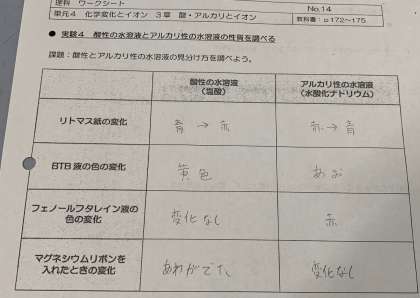 理科 ワークシート
No.14
単元4 化学変化とイオン 3章 酸・アルカリとイオン
教科書：p172～175
● 実験4 酸性の水溶液とアルカリ性の水溶液の性質を調べる
課題：酸性とアルカリ性の水溶液の見分け方を調べよう。
酸性の水溶液
（塩酸）
アルカリ性の水溶液
（水酸化ナトリウム）
リトマス紙の変化
青 → 赤
赤 → 青
BTB 液の色の変化
黄色
あお
フェノールフタレイン液の
色の変化
変化なし
赤
マグネシウムリボンを
入れたときの変化
あわがでた
変化なし